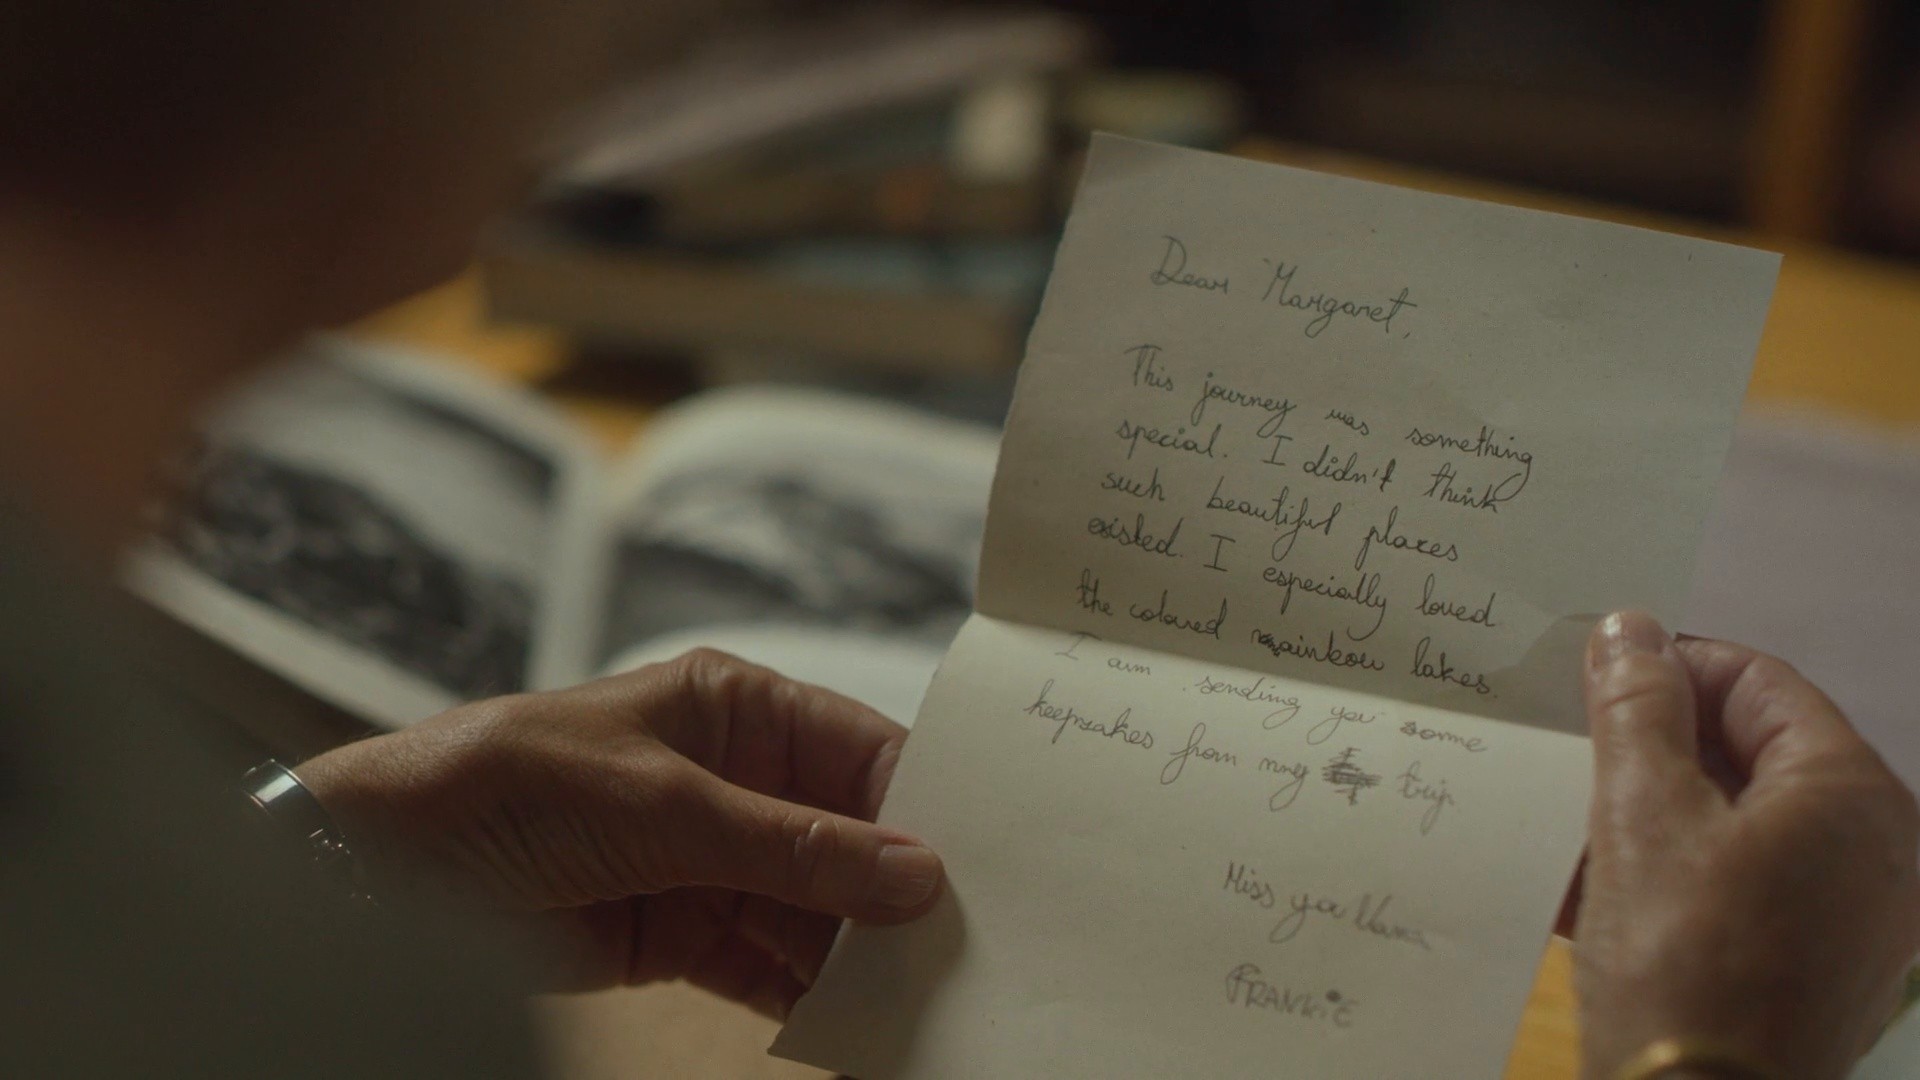 Dear Margaret,
This journey was something
special. I didn't think
such beautiful places
existed. I especially loved
the colored rainbow lakes.
I am sending you some
keepsakes from my trip
Miss you
FRANKiE